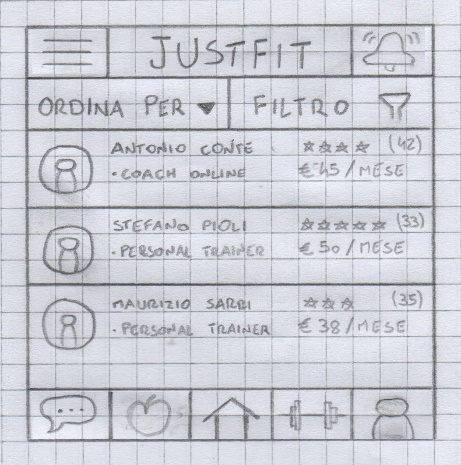 JUSTFIT
ORDINA PER FILTRO
ANTONIO CONTE (42)
• COACH ONLINE €45/MESE
STEFANO PIOLI (33)
• PERSONAL TRAINER €50/MESE
MAURIZIO SARRI (35)
• PERSONAL TRAINER €38/MESE